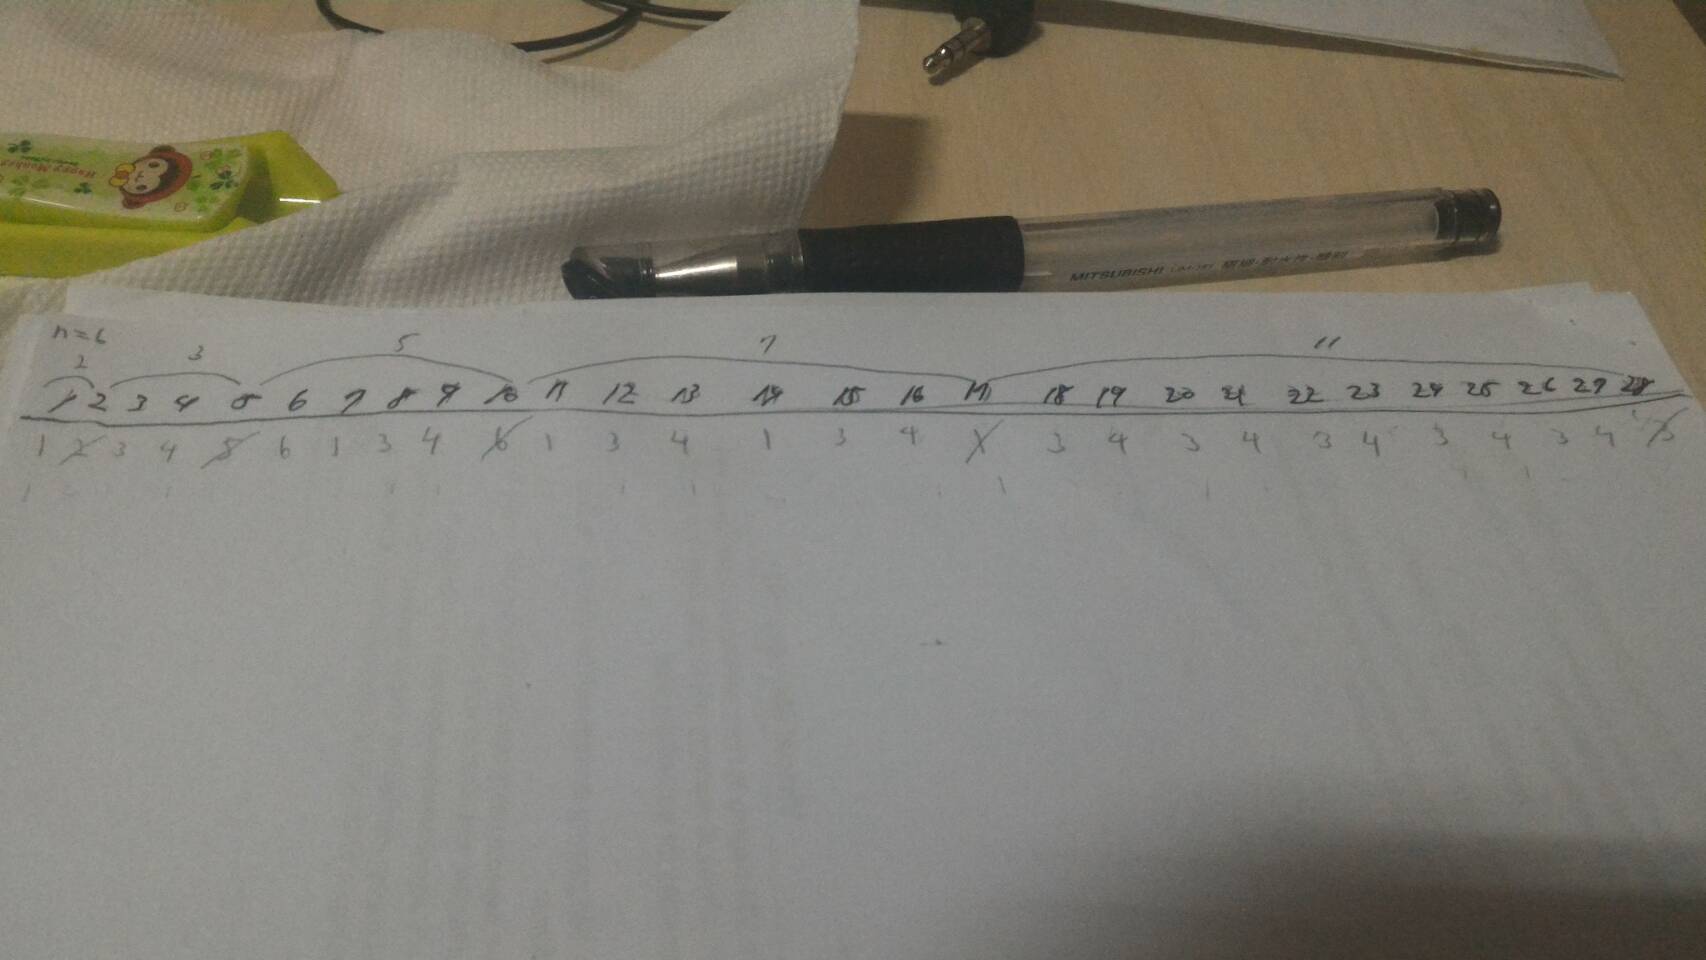 Happy Monkey
MITSUBISHI
n=6
2 3 5 7 11
1 2 3 4 5 6 7 8 9 10 11 12 13 14 15 16 17 18 19 20 21 22 23 24 25 26 27 28
1 2 3 4 5 6 1 3 4 6 1 3 4 1 3 4 1 3 4 3 4 3 4 3 4 3 4 3